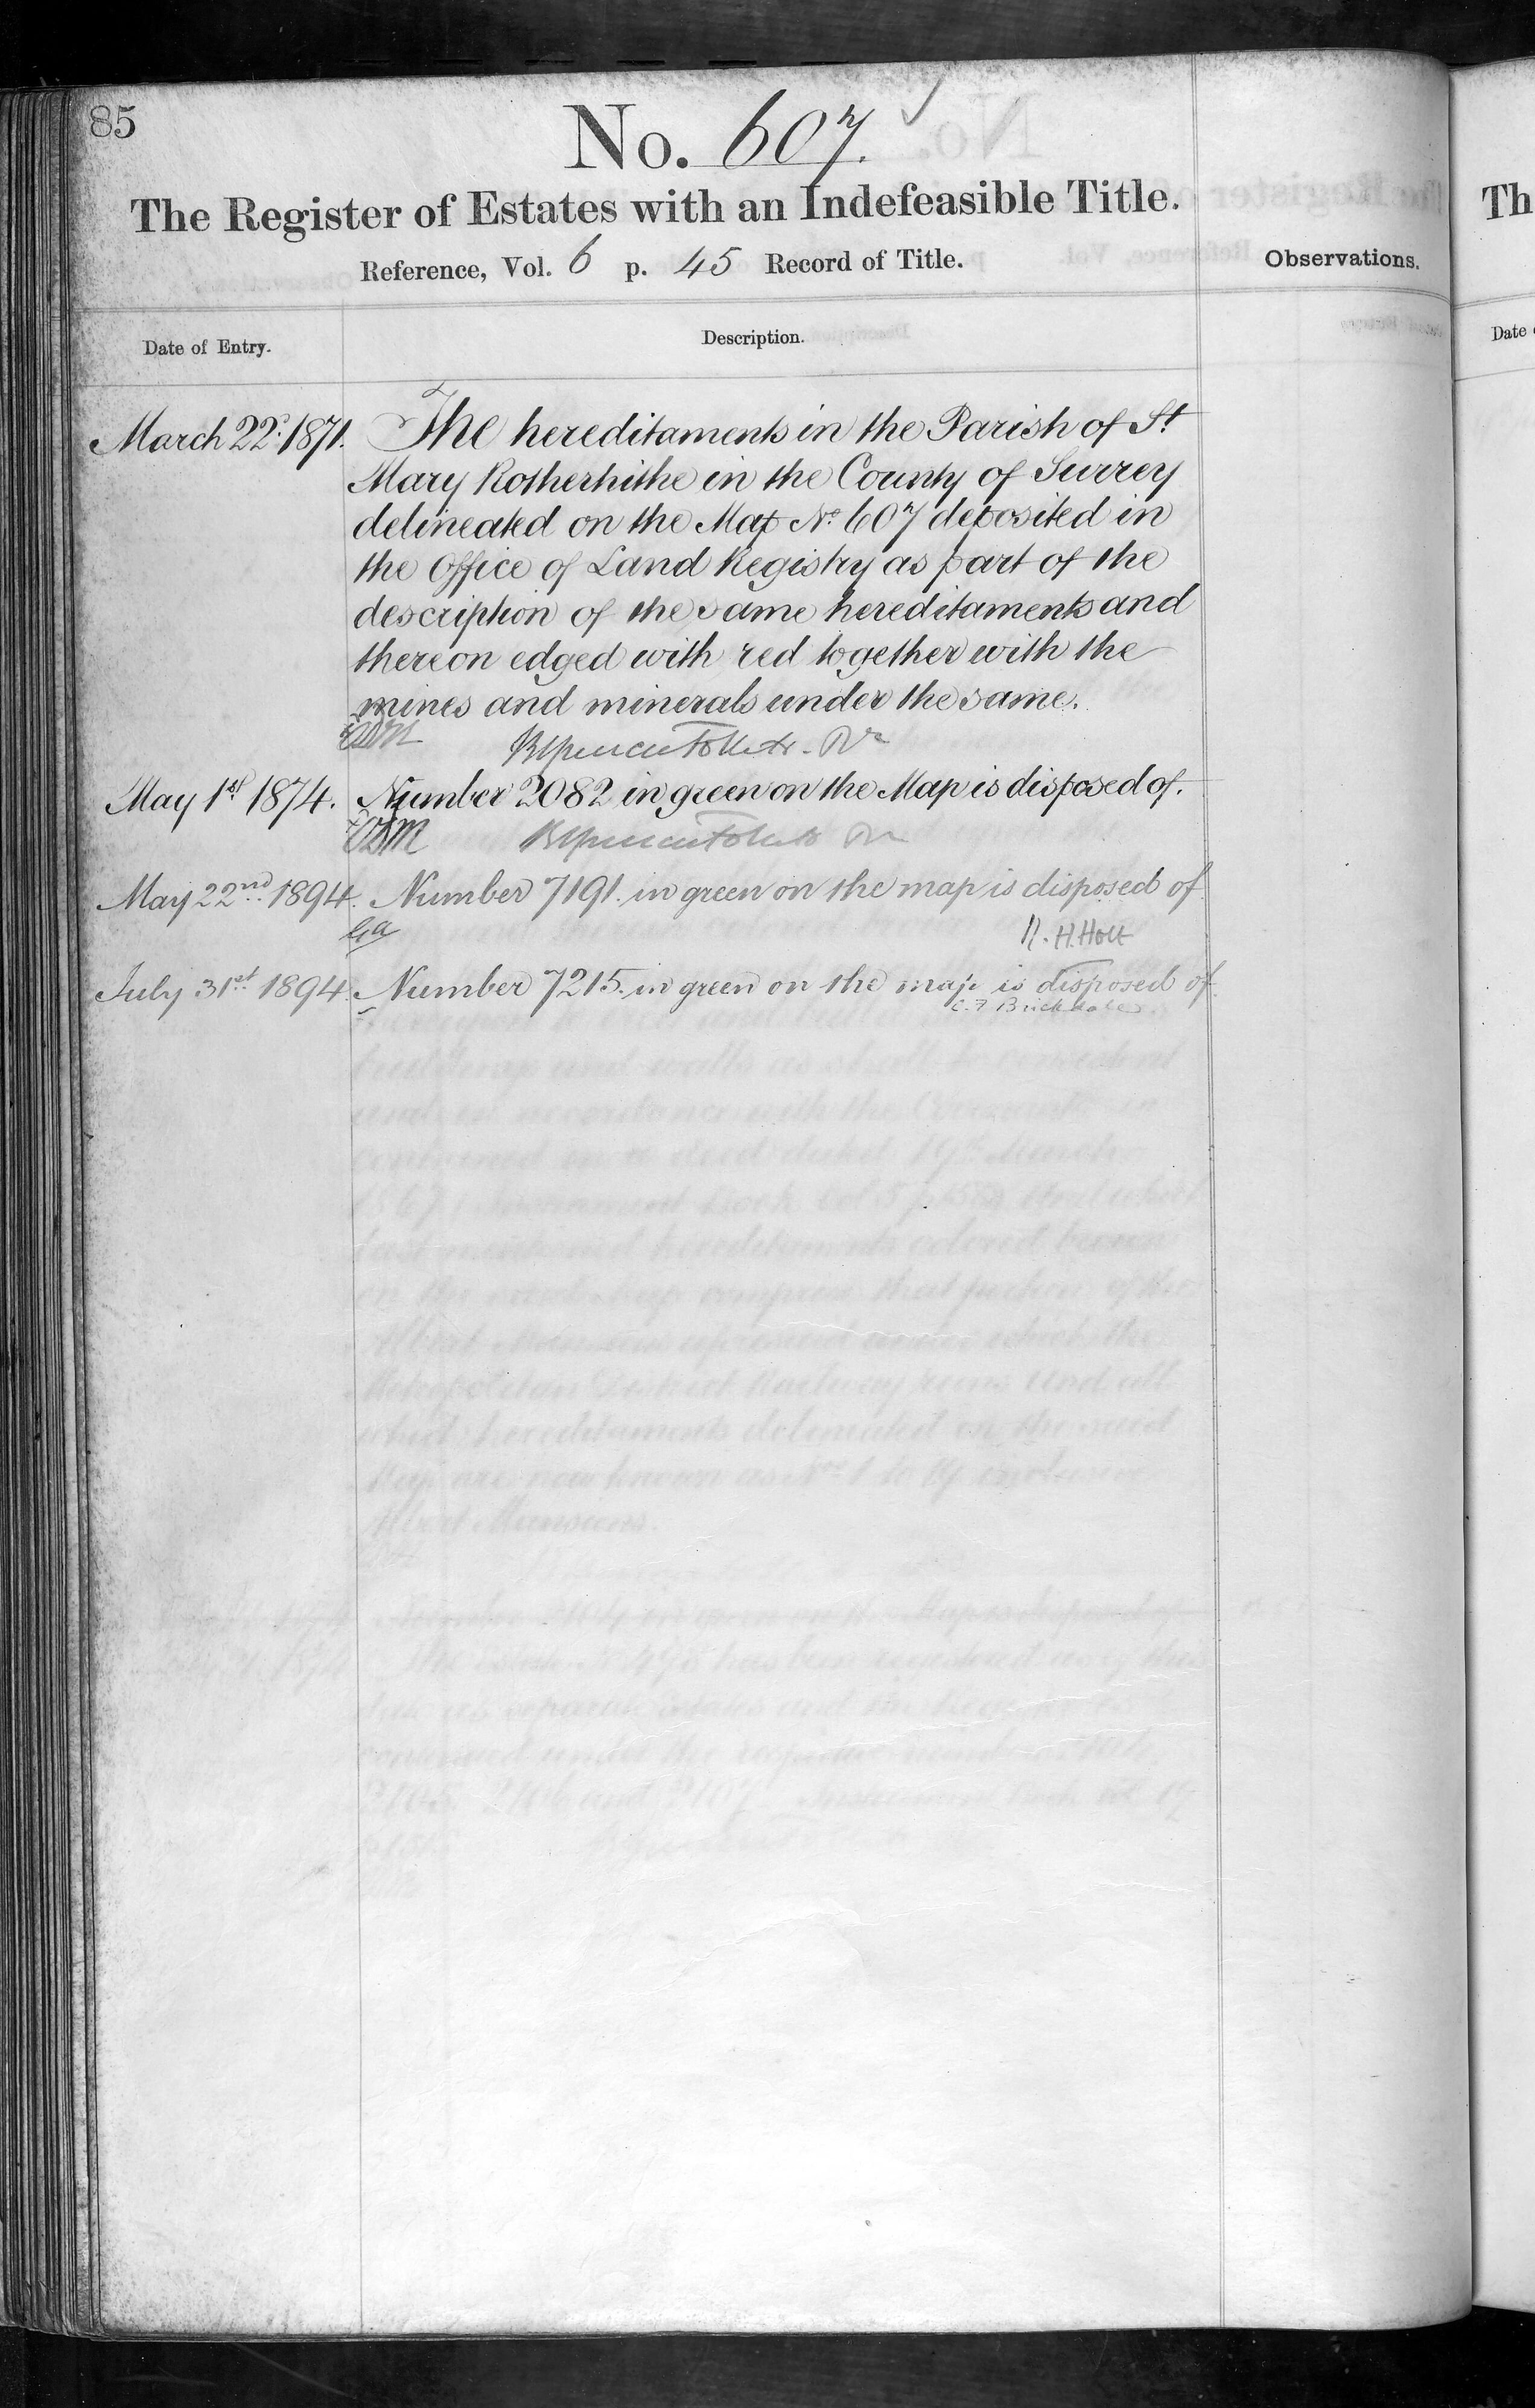 85
No. 607.
The Register of Estates with an Indefeasible Title.
Reference, Vol. 6 p. 45 Record of Title.
Observations.
Date of Entry.
Description.
March 22d. 1871. The hereditaments in the Parish of St
Mary Rotherhithe in the County of Surrey
delineated on the Map No. 607 deposited in
the Office of Land Registry as part of the
description of the same hereditaments and
thereon edged with red together with the
mines and minerals under the same.
May 1st 1874. Number 2082 in green on the Map is disposed of.
May 22nd. 1894. Number 7191. in green on the map is disposed of
R. H. Holt
July 31st. 1894. Number 7215. in green on the map is disposed of
Th
Date